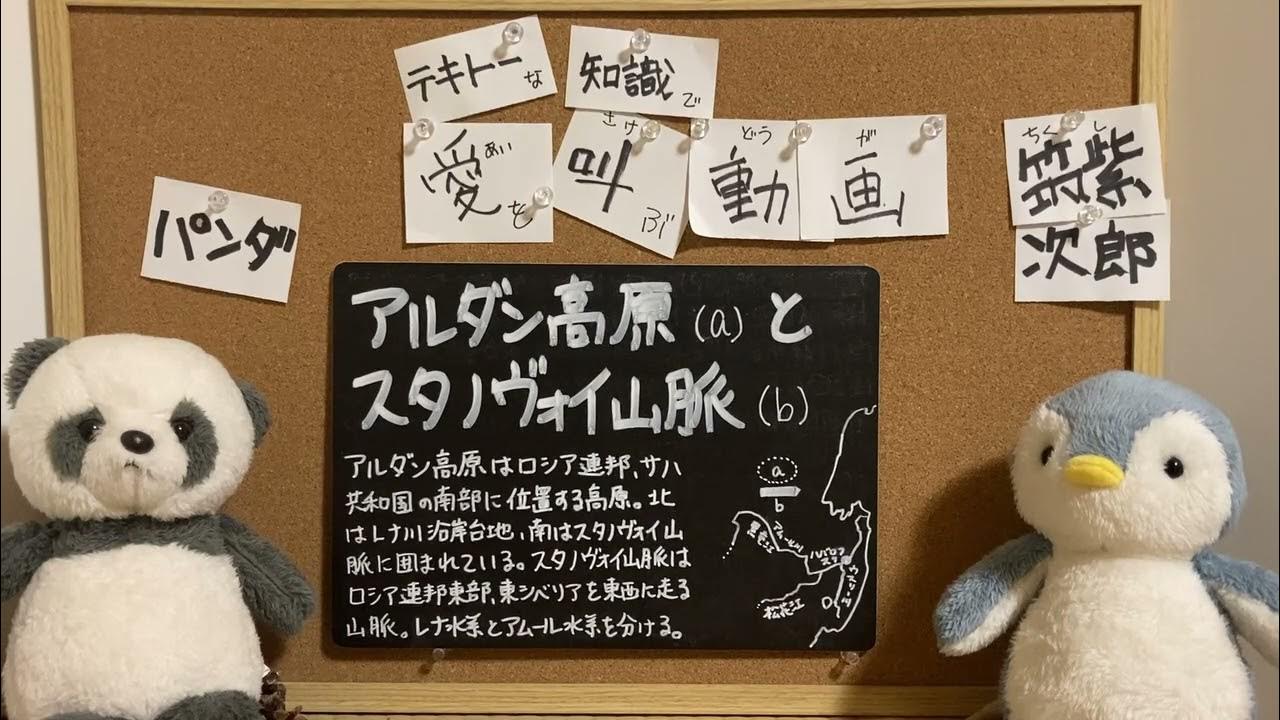 テキトーな
知識で
愛あいを
叫さけぶ
動どう
画が
パンダ
筑紫ちくし
次郎
アルダン高原(a)と
スタノヴォイ山脈(b)
アルダン高原はロシア連邦、サハ
共和国の南部に位置する高原。北
はレナ川沿岸台地、南はスタノヴォイ山
脈に囲まれている。スタノヴォイ山脈は
ロシア連邦東部、東シベリアを東西に走る
山脈。レナ水系とアムール水系を分ける。
a
b
アムール川
黒竜江
ハバロフスク
ウスリー川
松花江